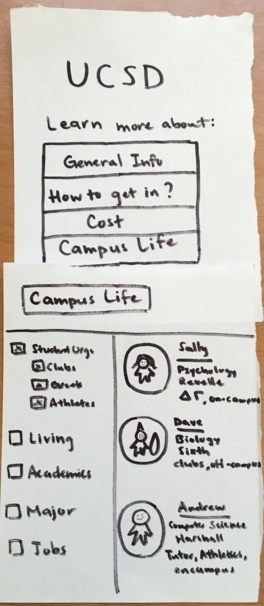 UCSD
Learn more about:
General Info
How to get in?
Cost
Campus Life
Campus Life
Student Orgs
Clubs
Greek
Athletes
Living
Academics
Major
Jobs
Sally
Psychology
Revelle
ΔΓ, on-campus
Dave
Biology
Sixth
clubs, off-campus
Andrew
Computer Science
Marshall
Tutor, Athletes,
oncampus